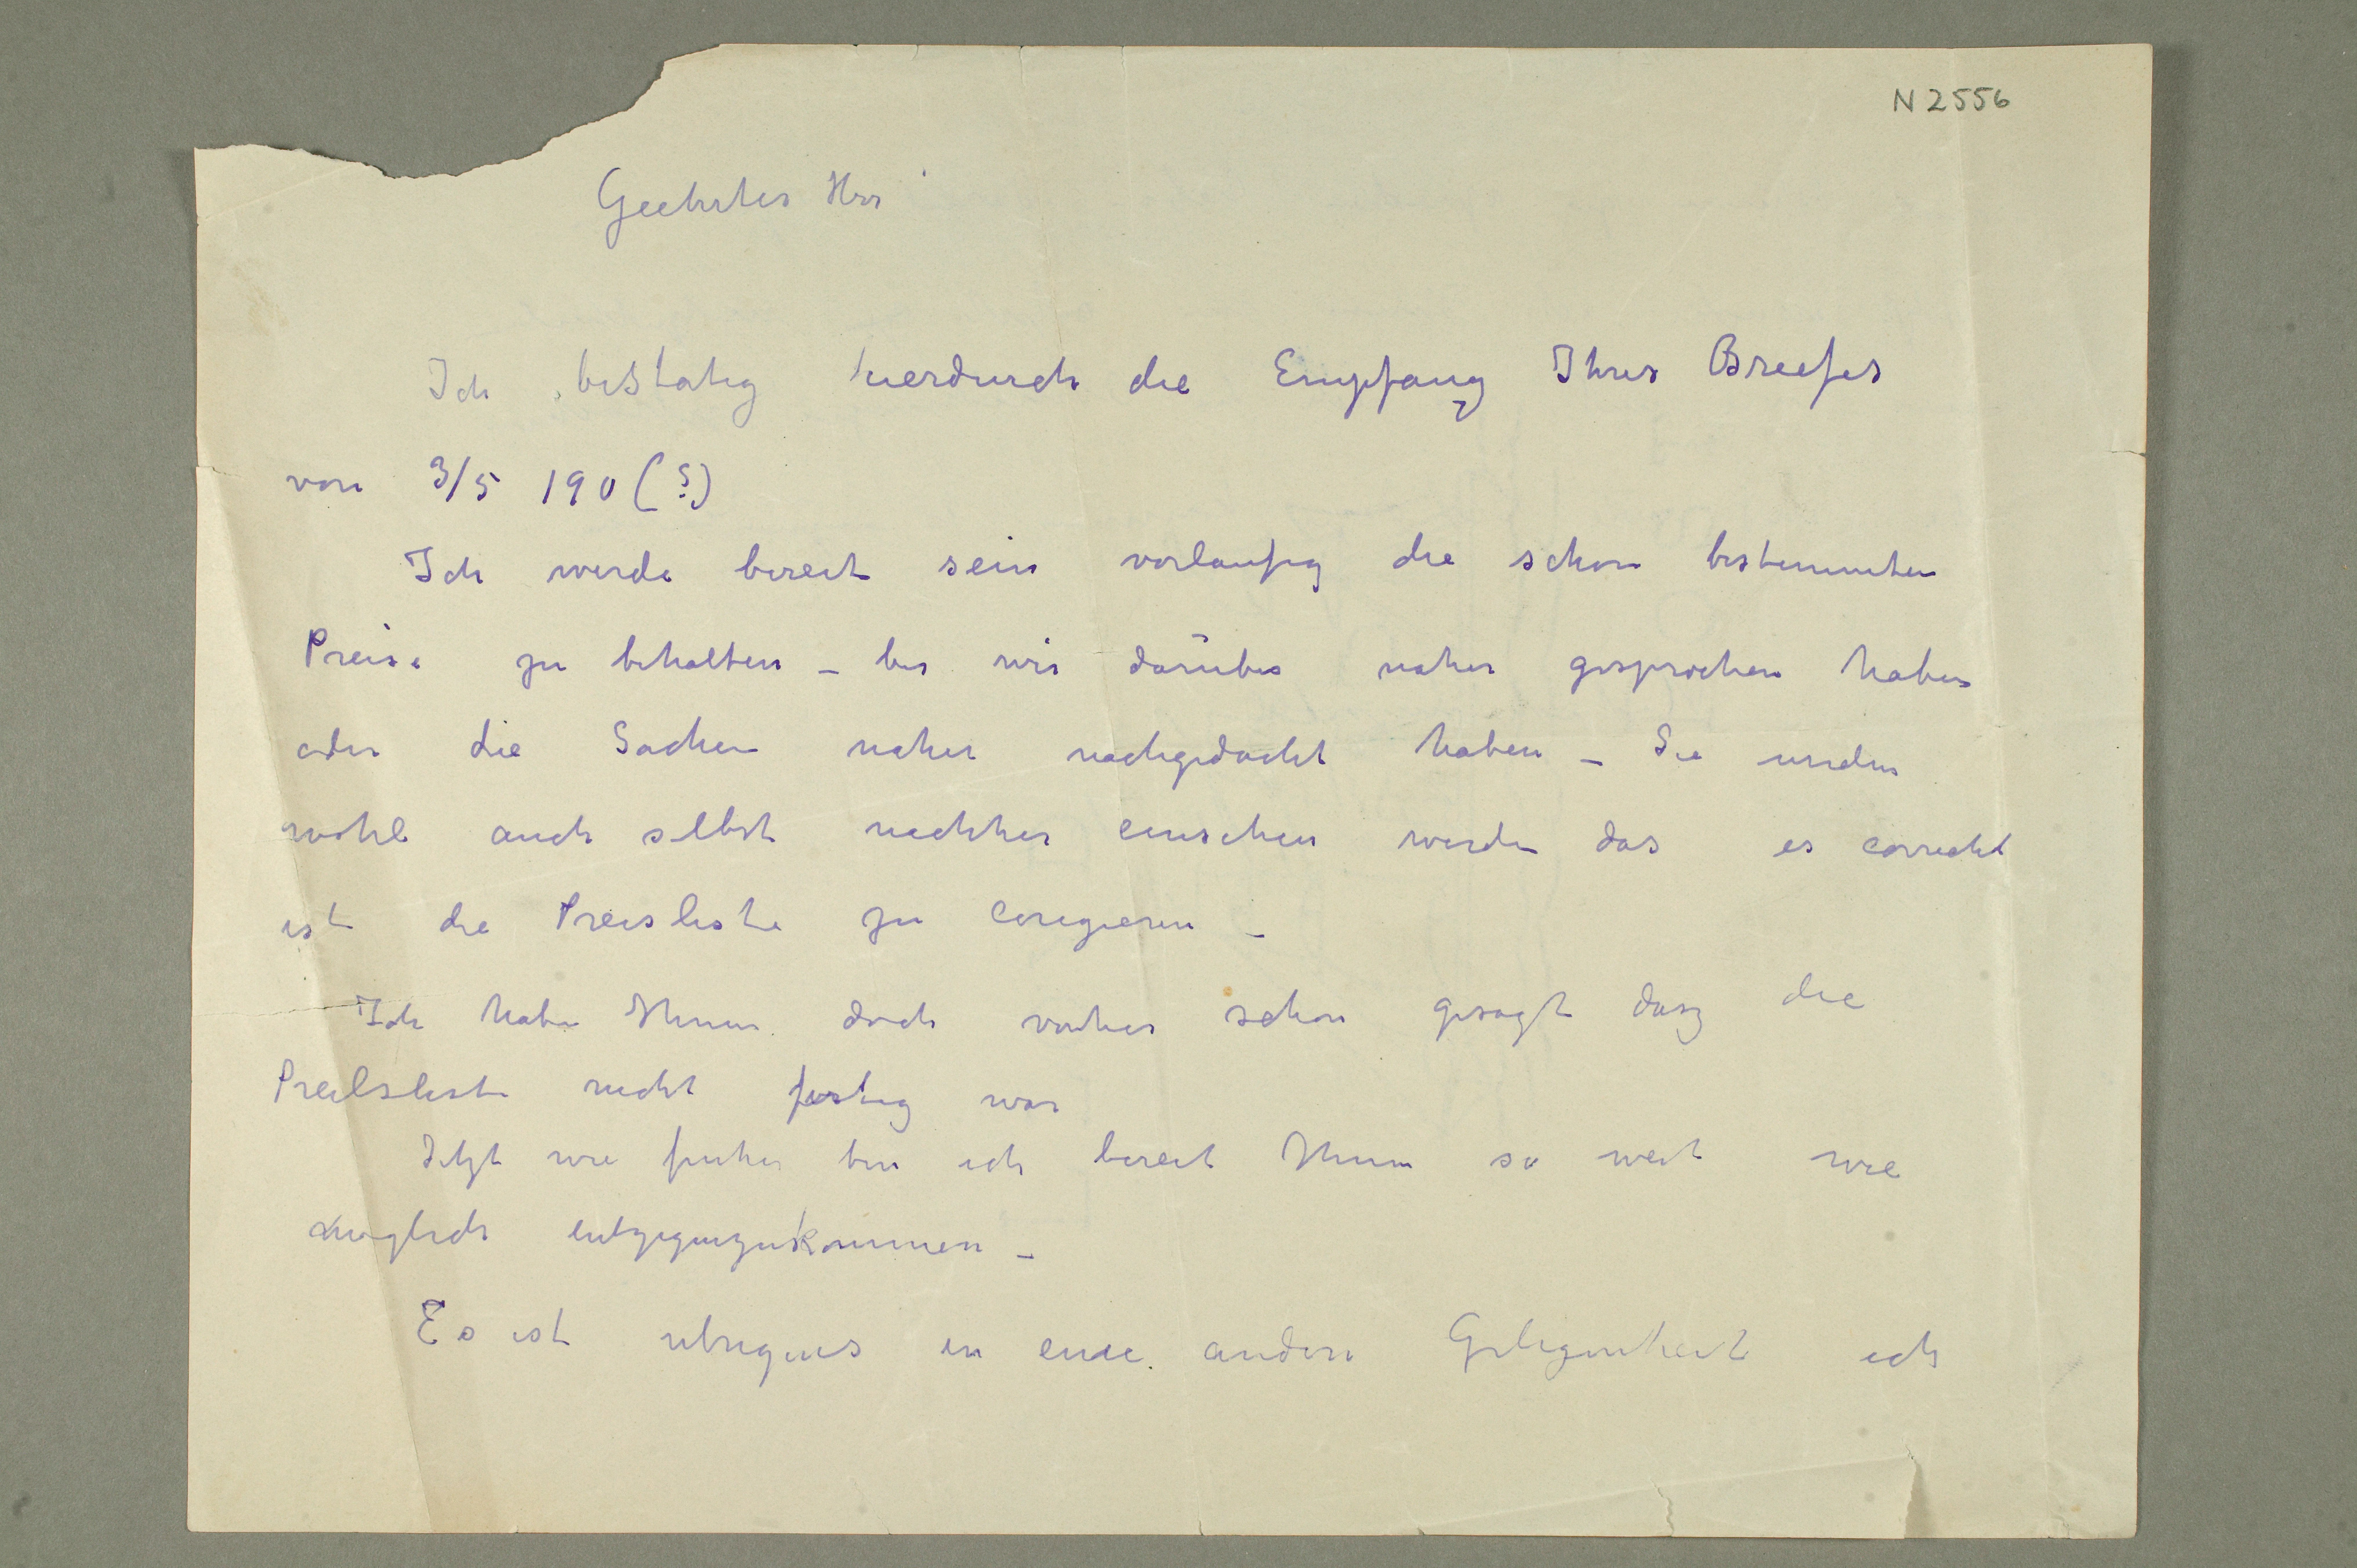 N 2556
Geehrter Herr
Ich bestatig hierdurch die Empfang Ihres Briefes
von 3/5 190(?)
Ich werde bereit sein vorlaufig die schon bestimmten
Preise zu behalten – bis wir darüber naher gesprochen haben
oder die Sachen naher nachgedacht haben – Sie
wohl auch selbst nachher einsehen werden das es correckt
ist die Preisliste zu corigieren –
Ich habe Ihnen doch vorher schon gesagt dasz die
Preilsliste nicht fertig war
Jetzt wie fruher bin ich bereit Ihnen so weit wie
moglich entgegenzukommen –
Es ist ubrigens in eine andere Gelegenheit ich